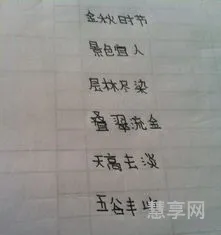 金秋时节
景色宜人
层林尽染
叠翠流金
天高去淡
五谷丰
慧享网